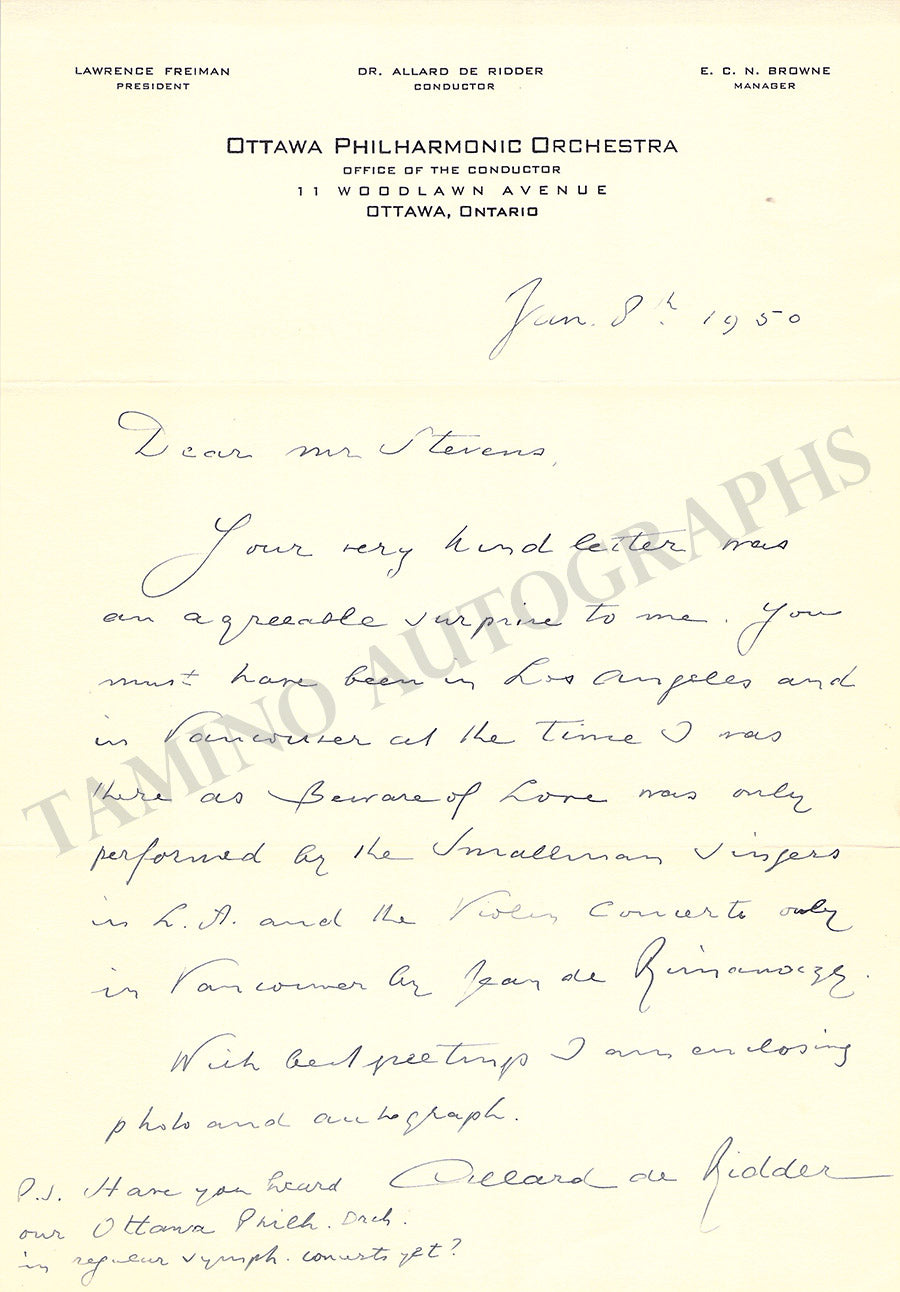 LAWRENCE FREIMAN
PRESIDENT
DR. ALLARD DE RIDDER
CONDUCTOR
E. C. N. BROWNE
MANAGER
OTTAWA PHILHARMONIC ORCHESTRA
OFFICE OF THE CONDUCTOR
11 WOODLAWN AVENUE
OTTAWA, ONTARIO
Jan. 8th 1950
Dear Mr Stevens,
Your very kind letter was
an agreeable surprise to me. You
must have been in Los Angeles and
in Vancouver at the time I was
there as Beware of Love was only
performed by the Smallman Singers
in L.A. and the Violin Concerto only
in Vancouver by Jean de Rimanoczy.
With best greetings I am enclosing
photo and autograph.
Allard de Ridder
P.S. Have you heard
our Ottawa Philh. Orch.
in regular symph. concerts yet?
TAMINO AUTOGRAPHS